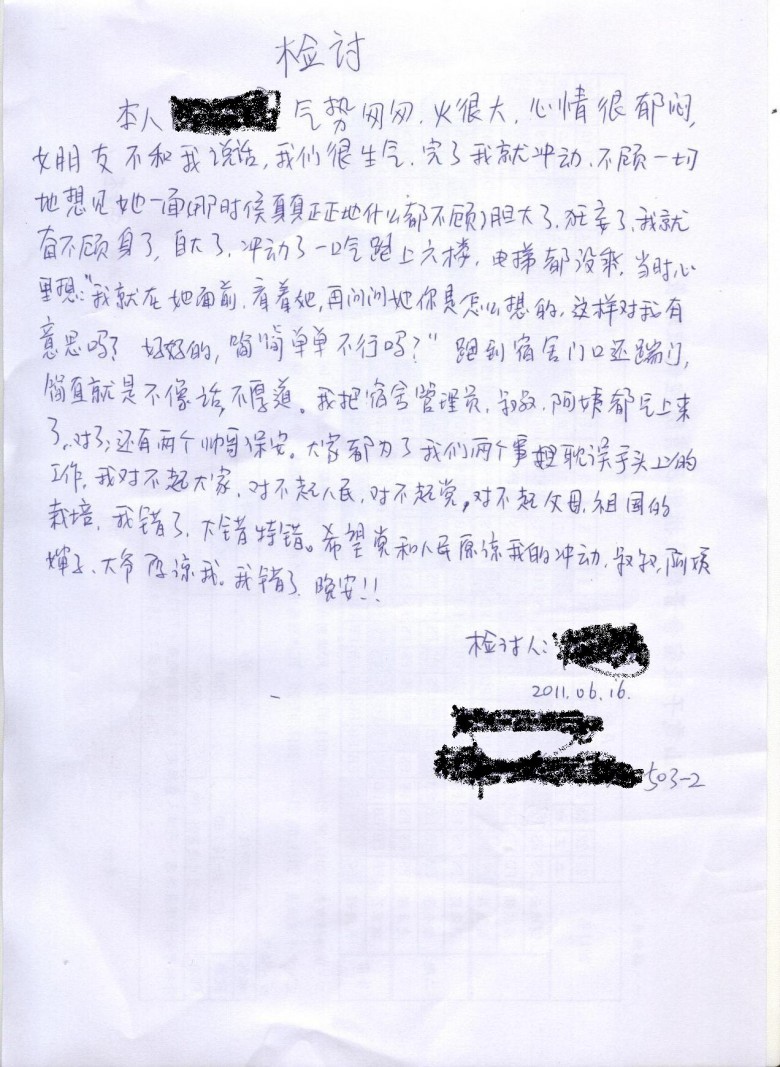 检讨
本人 气势匆匆，火很大，心情很郁闷，
女朋友不和我说话，我们很生气，完了我就冲动，不顾一切
地想见她一面(那时侯真真正正地什么都不顾)胆大了，狂妄了，我就
奋不顾身了，自大了，冲动了一口气跑上六楼，电梯都没乘，当时心
里想："我就在她面前，看着她，再问问她你是怎么想的，这样对我有
意思吗？好好的，简简单单不行吗？"跑到宿舍门口还踹门，
简直就是不像话，不厚道。我把宿舍管理员，叔叔，阿姨都气上来
了，对了，还有两个帅哥保安。大家都为了我们两个事耽误手头上的
工作，我对不起大家，对不起人民，对不起党，对不起父母，祖国的
栽培，我错了，大错特错。希望党和人民原谅我的冲动，叔叔，阿姨
婶子、大爷原谅我。我错了，晚安!!
检讨人：
2011.06.16.
503-2